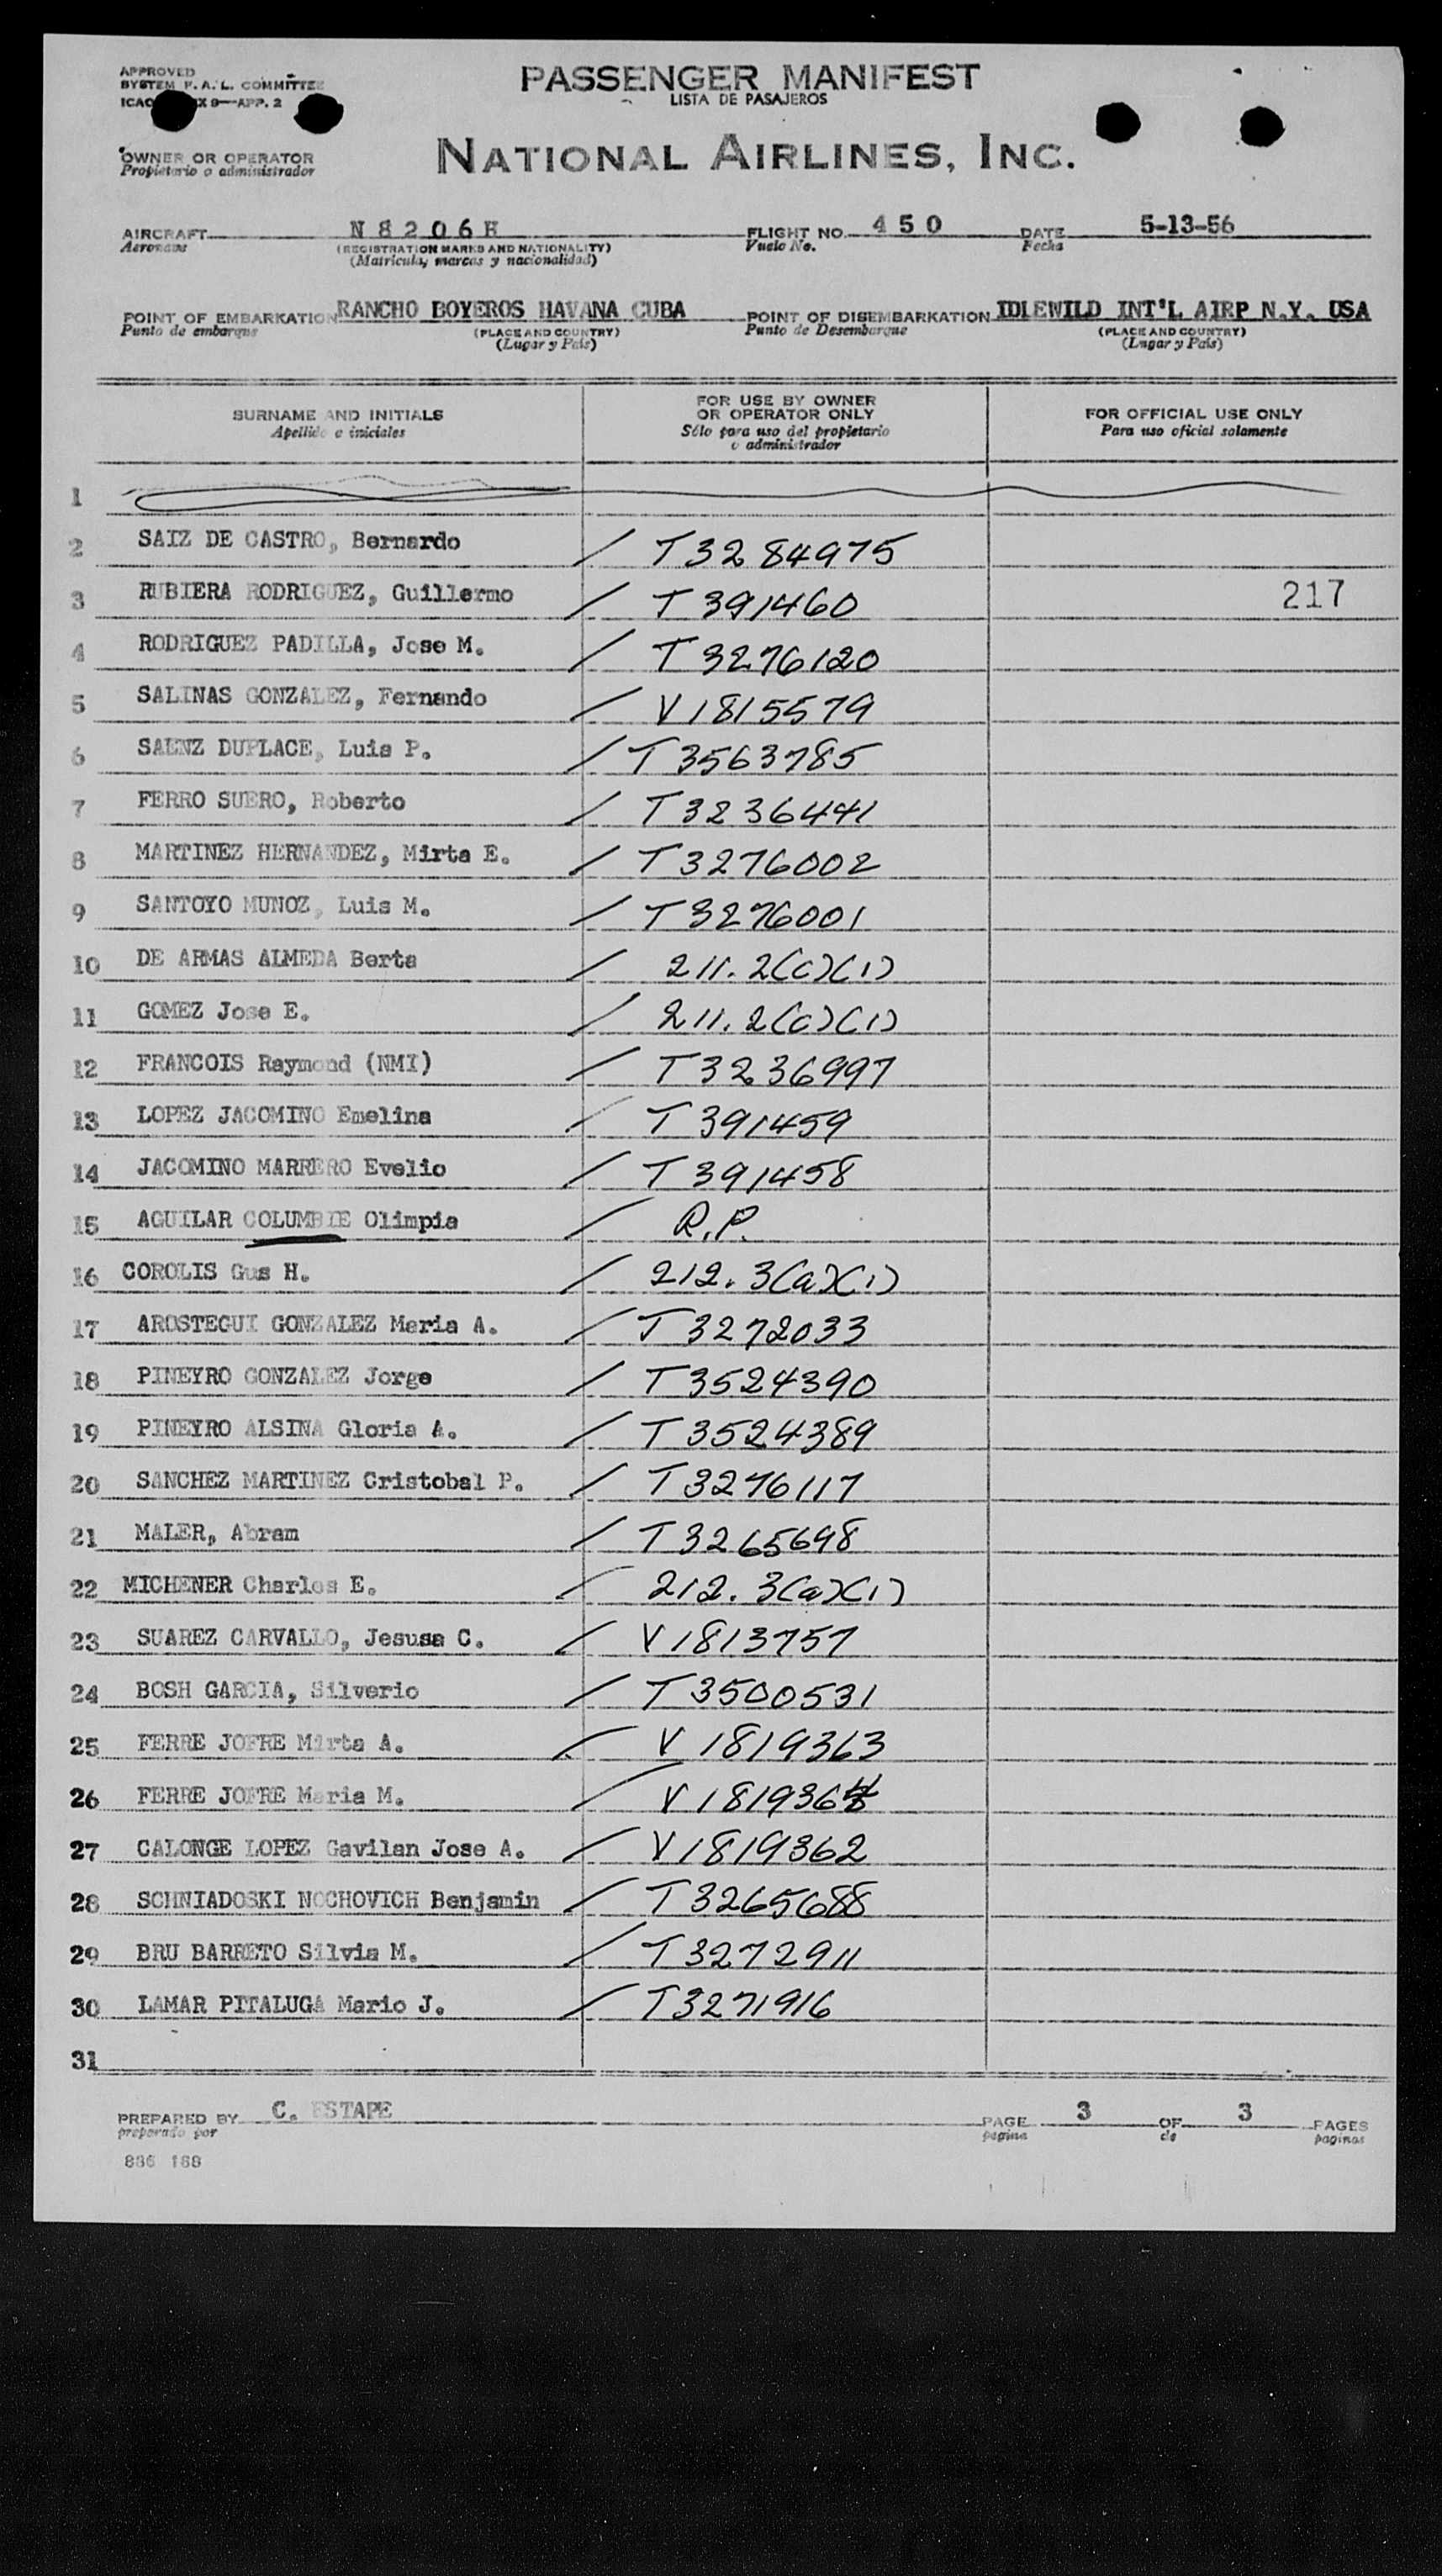 APPROVED
SYSTEM F.A.L. COMMITTEE
ICAO X 9—APP. 2
PASSENGER MANIFEST
LISTA DE PASAJEROS
OWNER OR OPERATOR
Propietario o administrador
NATIONAL AIRLINES, INC.
AIRCRAFT N8206H FLIGHT NO. 450 DATE 5-13-56
Aeronave (REGISTRATION MARKS AND NATIONALITY) Vuelo No. Fecha
(Matricula, marcas y nacionalidad)
POINT OF EMBARKATION RANCHO BOYEROS HAVANA CUBA POINT OF DISEMBARKATION IDLEWILD INT'L AIRP N.Y. USA
Punto de embarque (PLACE AND COUNTRY) Punto de Desembarque (PLACE AND COUNTRY)
(Lugar y País) (Lugar y País)
SURNAME AND INITIALS
Apellido e iniciales
FOR USE BY OWNER
OR OPERATOR ONLY
Sólo para uso del propietario
o administrador
FOR OFFICIAL USE ONLY
Para uso oficial solamente
1
2 SAIZ DE CASTRO, Bernardo / T3284975
3 RUBIERA RODRIGUEZ, Guillermo / T391460 217
4 RODRIGUEZ PADILLA, Jose M. / T3276120
5 SALINAS GONZALEZ, Fernando / V1815579
6 SAENZ DUPLACE, Luis P. / T3563785
7 FERRO SUERO, Roberto / T3236441
8 MARTINEZ HERNANDEZ, Mirta E. / T3276002
9 SANTOYO MUNOZ, Luis M. / T3276001
10 DE ARMAS ALMEDA Berta / 211.2(c)(1)
11 GOMEZ Jose E. / 211.2(c)(1)
12 FRANCOIS Raymond (NMI) / T3236997
13 LOPEZ JACOMINO Emelina / T391459
14 JACOMINO MARRERO Evelio / T391458
15 AGUILAR COLUMBIE Olimpia / R.P.
16 COROLIS Gus H. / 212.3(a)(1)
17 AROSTEGUI GONZALEZ Maria A. / T3272033
18 PINEYRO GONZALEZ Jorge / T3524390
19 PINEYRO ALSINA Gloria A. / T3524389
20 SANCHEZ MARTINEZ Cristobal P. / T3276117
21 MALER, Abram / T3265698
22 MICHENER Charles E. / 212.3(a)(1)
23 SUAREZ CARVALLO, Jesusa C. / V1813757
24 BOSH GARCIA, Silverio / T3500531
25 FERRE JOFRE Mirta A. / V1819363
26 FERRE JOFRE Maria M. / V1819364
27 CALONGE LOPEZ Gavilan Jose A. / V1819362
28 SCHNIADOSKI NOCHOVICH Benjamin / T3265688
29 BRU BARRETO Silvia M. / T3272911
30 LAMAR PITALUGA Mario J. / T3271916
31
PREPARED BY C. ESTAPE PAGE 3 OF 3 PAGES
preparado por pagina de paginas
886 188